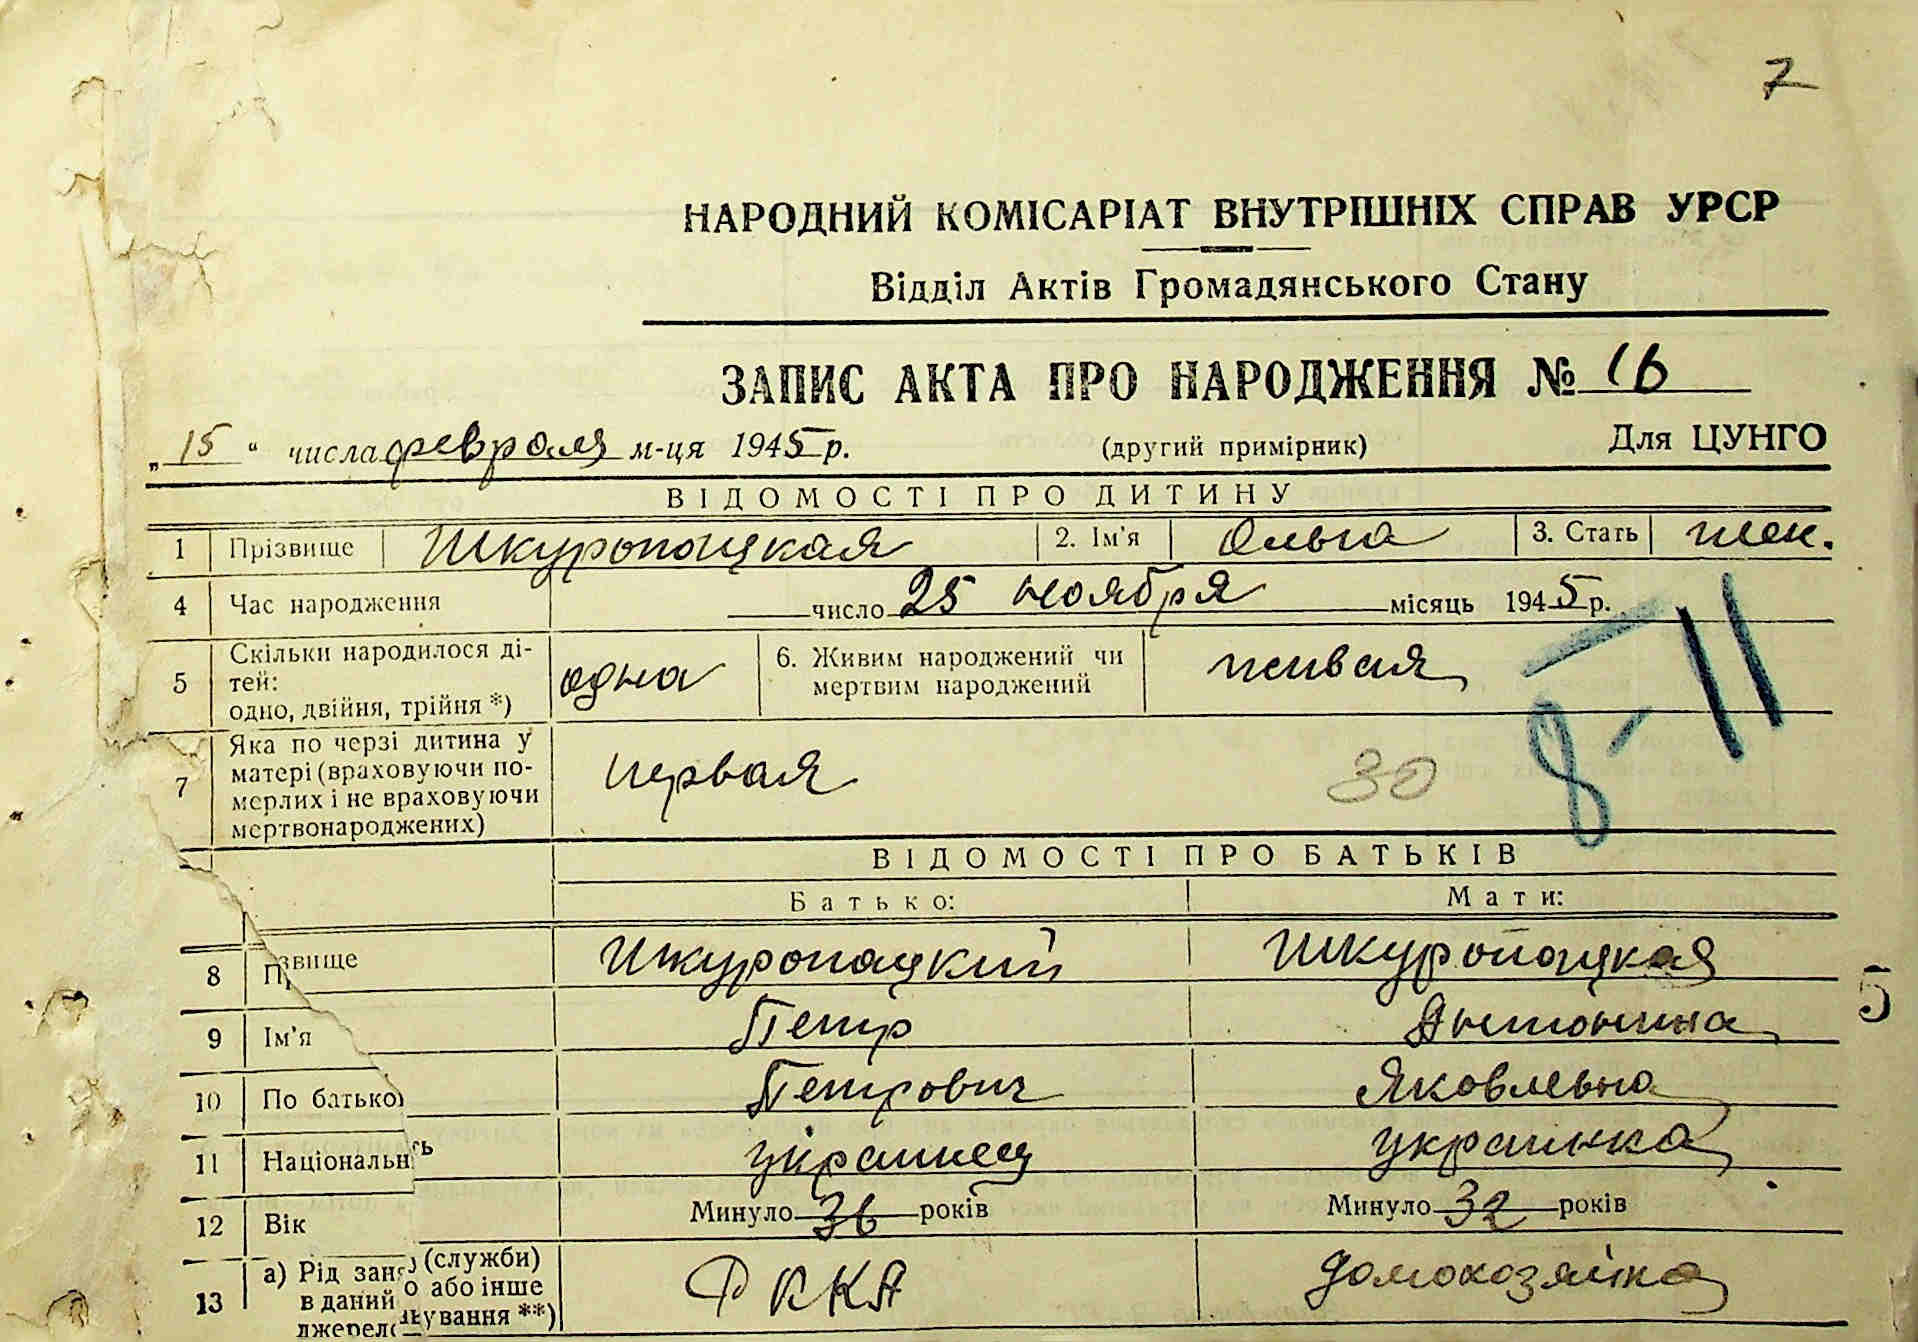 7
НАРОДНИЙ КОМІСАРІАТ ВНУТРІШНІХ СПРАВ УРСР
Відділ Актів Громадянського Стану
ЗАПИС АКТА ПРО НАРОДЖЕННЯ № 16
„15“ числа февраля м-ця 1945 р. (другий примірник) Для ЦУНГО
ВІДОМОСТІ ПРО ДИТИНУ
1 Прізвище Шкуропацкая 2. Ім'я Ольга 3. Стать жен.
4 Час народження число 25 ноября місяць 1945 р.
5 Скільки народилося ді-
тей:
одно, двійня, трійня *) одна 6. Живим народжений чи
мертвим народжений живая
8-11
7 Яка по черзі дитина у
матері (враховуючи по-
мерлих і не враховуючи
мертвонароджених) первая 30
ВІДОМОСТІ ПРО БАТЬКІВ
Батько: Мати:
8 Прізвище Шкуропацкий Шкуропацкая
5
9 Ім'я Петр Антонина
10 По батько Петрович Яковлевна
11 Національність українец украинка
12 Вік Минуло 36 років Минуло 32 років
13 а) Рід заня (служби) РККА домохозяйка
в даний о або інше
джерел ування **)